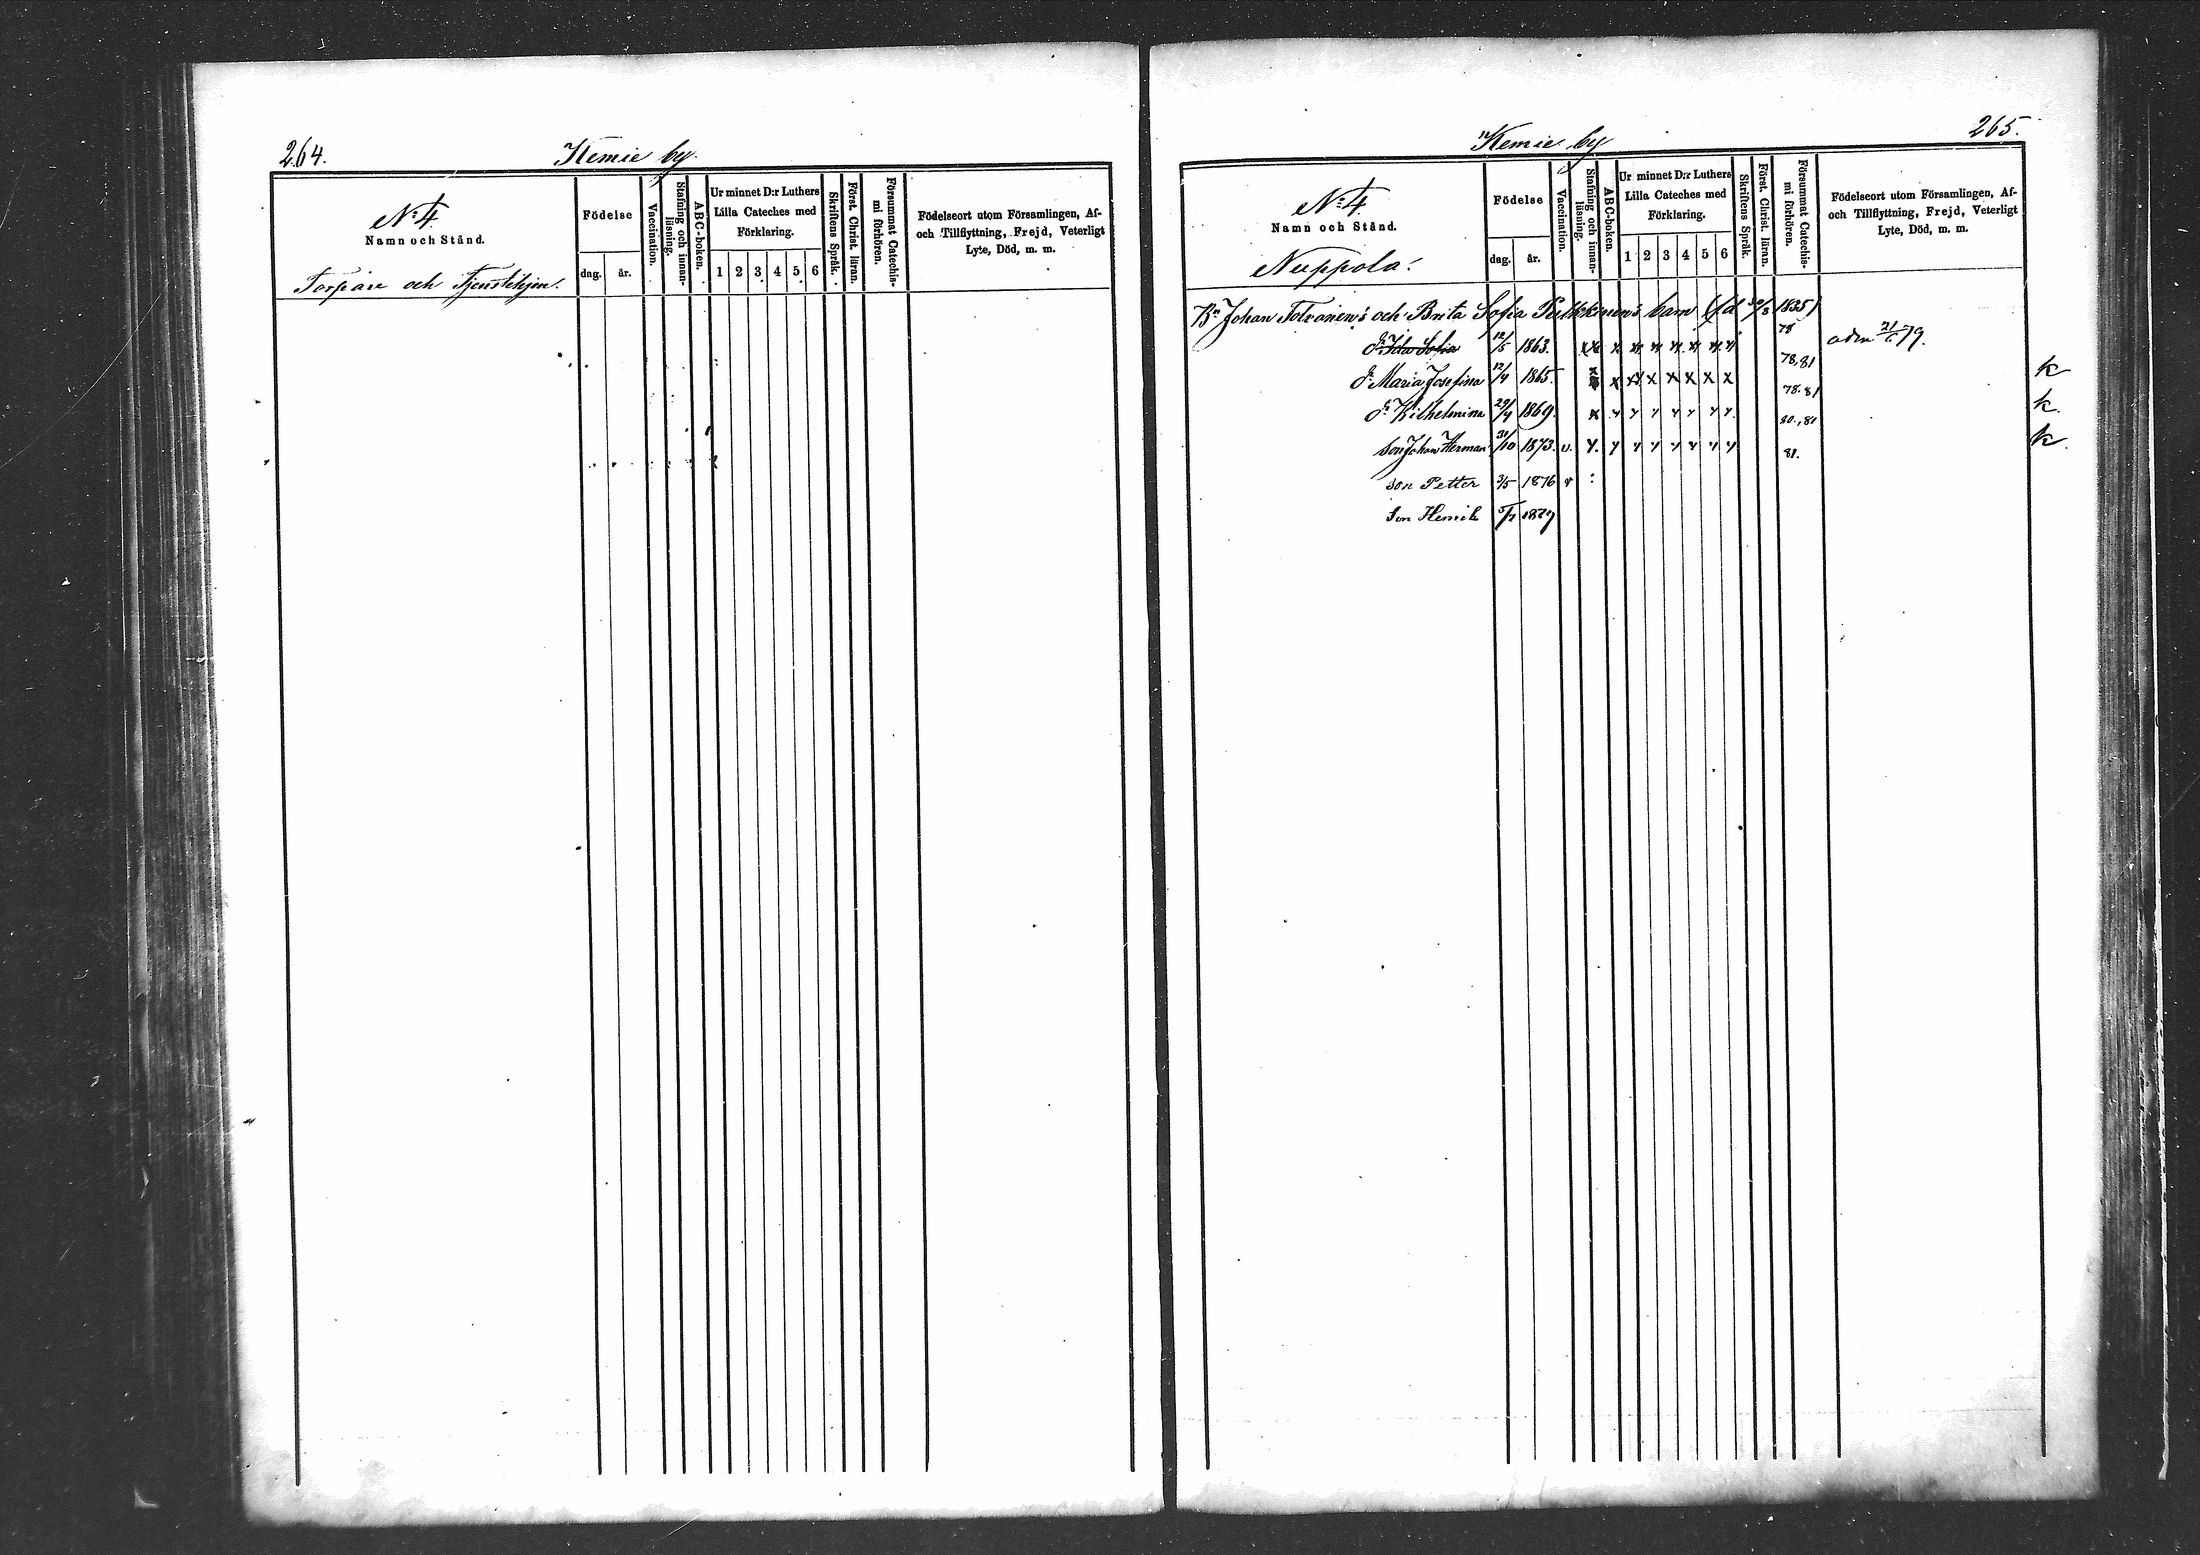 264.
Kemie by.
No: 4.
Namn och Stånd.
Torpare och Tjenstehjon.
Födelse
dag. år.
Vaccination.
Stafning och innan-
läsning.
ABC-boken.
Ur minnet D:r Luthers
Lilla Cateches med
Förklaring.
1 2 3 4 5 6
Skriftens Språk.
Först. Christ. läran.
Försummat Catechis-
mi förhören.
Födelseort utom Församlingen, Af-
och Tillflyttning, Frejd, Veterligt
Lyte, Död, m. m.
265.
Kemie by
No: 4.
Namn och Stånd.
Nuppola.
Födelse
dag. år.
Vaccination.
Stafning och innan-
läsning.
ABC-boken.
Ur minnet D:r Luthers
Lilla Cateches med
Förklaring.
1 2 3 4 5 6
Skriftens Språk.
Först. Christ. läran.
Försummat Catechis-
mi förhören.
Födelseort utom Församlingen, Af-
och Tillflyttning, Frejd, Veterligt
Lyte, Död, m. m.
Bn Johan Tolvanen's och Brita Sofia Pulkkinen's barn (fd 30/3 1835)
dr Ida Sofia 12/5 1863. x x x x x x x x 78 adm 79.
dr Maria Josefina 12/4 1865. x x x x x x x x 78, 81 k
dr Wilhelmina 29/4 1869. x x x x x x x x 78. 81 k
son Johan Herman 31/10 1873. v. x x x x x x x x 80., 81 k
son Petter 3/5 1876 v 81.
son Henrik 5/7 1879